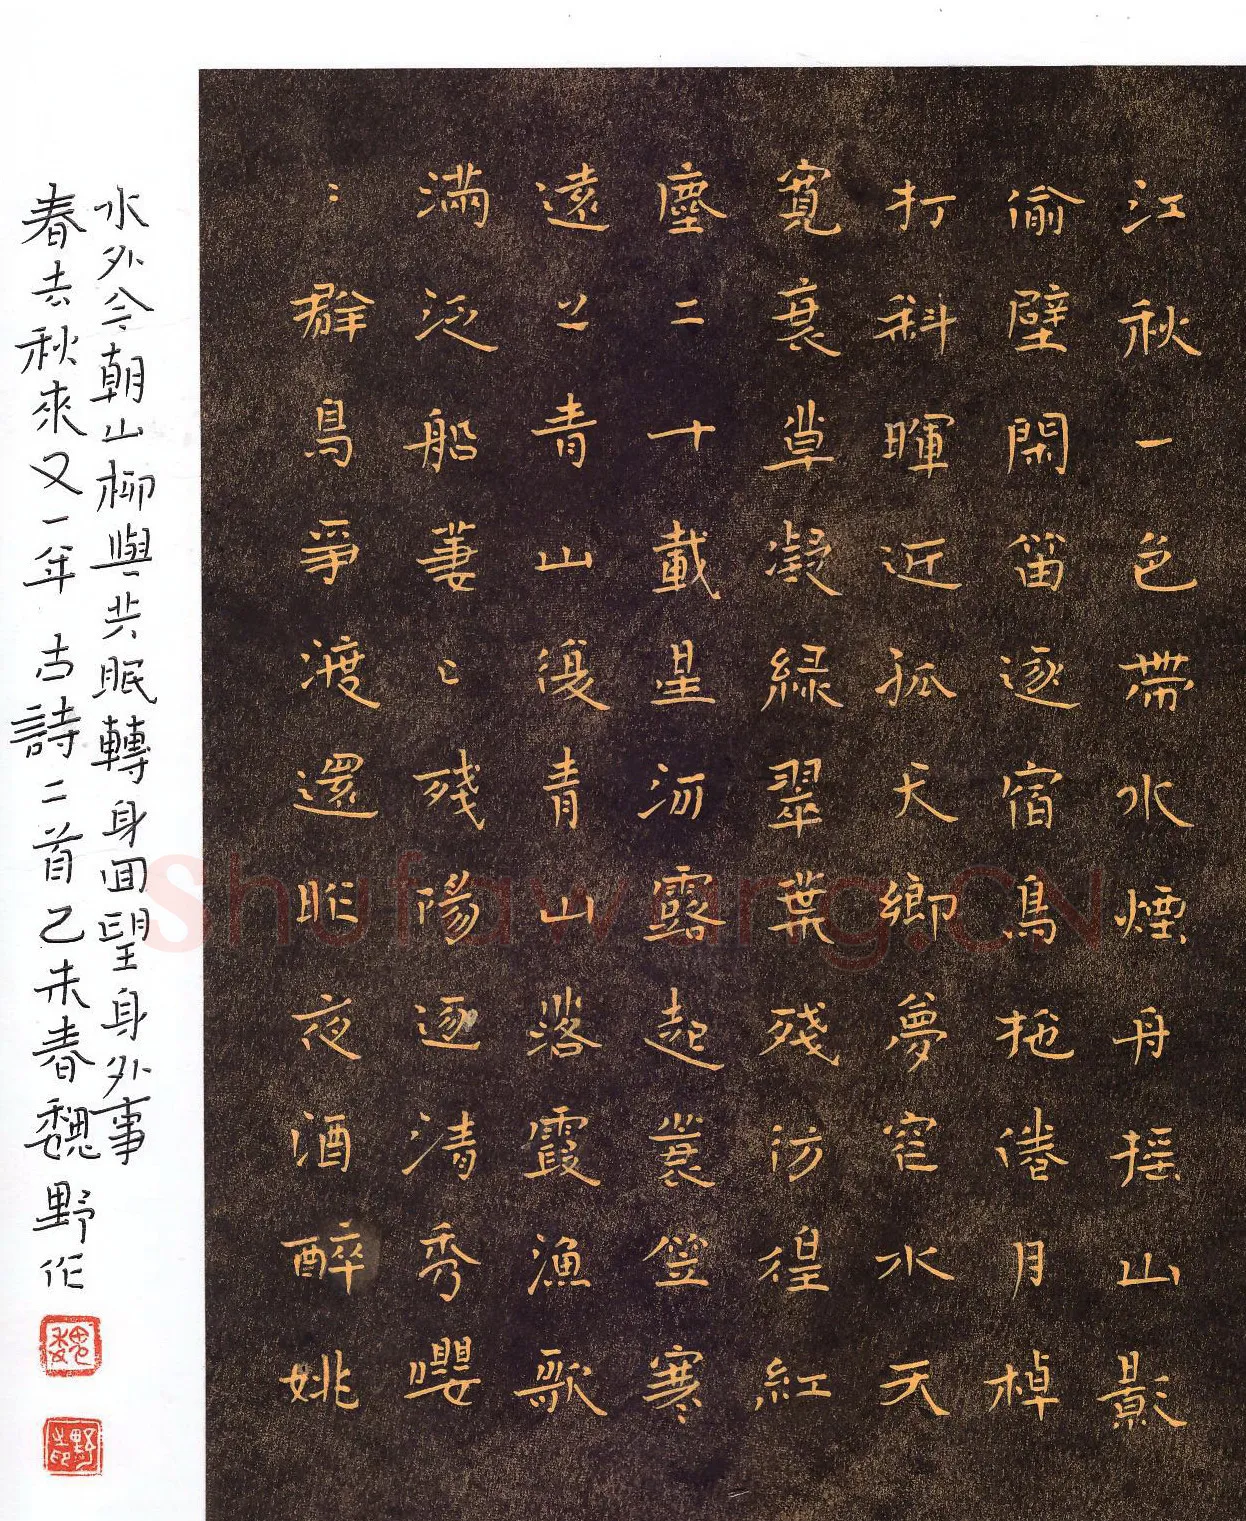 江秋一色帶水煙舟搖山影
偷壁閑笛逐宿鳥拖倦月棹
打斜暉近孤天鄉夢窄水天
寬衰草凝綠翠葉殘彷徨紅
塵二十載星河露起蓑笠寒
遠山青山復青山落霞漁歌
滿泛船萋〻殘陽逐清秀嚶
〻群鳥爭渡還昨夜酒醉姚
水外今朝山柳與共眠轉身回望身外事
春去秋來又一年 古詩二首 己未春魏野作
魏
野
Shufawang.CN